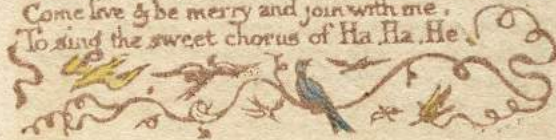 Come live & be merry and join with me,
To sing the sweet chorus of Ha, Ha, He.